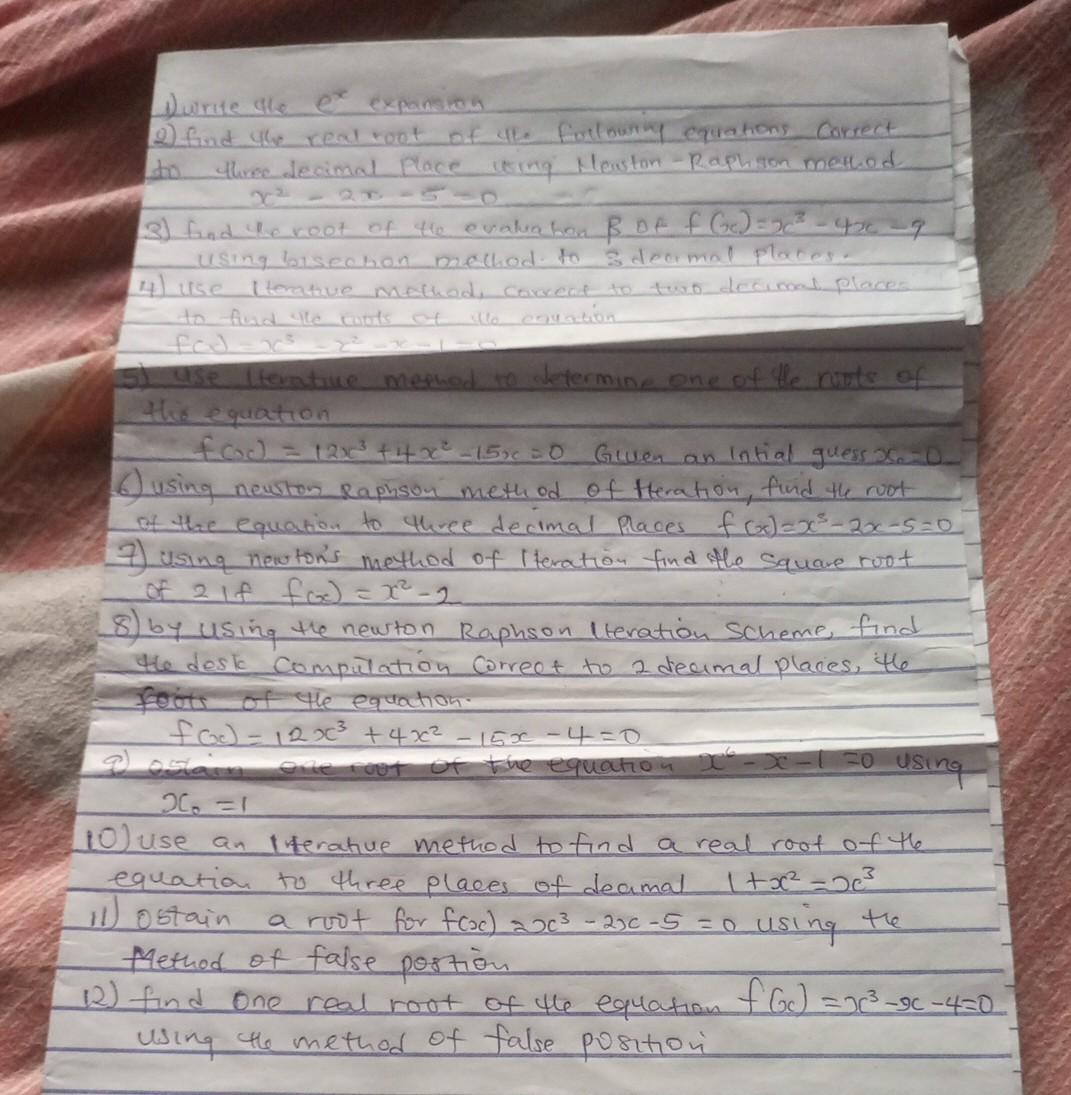 1) write the eˣ expansion
2) find the real root of the following equations correct
to three decimal place using Newston-Raphson method
x² - 2x - 5 = 0
3) find the root of the evaluation β of f(x) = x³ - 4x - 9
using bisection method to 3 decimal places.
4) use Iterative method, correct to two decimal places
to find the roots of the equation
f(x) = x³ - x² - x - 1 = 0
5) use Iterative method to determine one of the roots of
the equation
f(x) = 12x³ + 4x² - 15x = 0 Given an intial guess x₀ = 0
6) using newston Raphson method of Iteration, find the root
of the equation to three decimal places f(x) = x³ - 2x - 5 = 0
7) using newton's method of Iteration find the square root
of 2 if f(x) = x² - 2
8) by using the newton Raphson Iteration scheme, find
the desk Computation Correct to 2 decimal places, the
roots of the equation.
f(x) = 12x³ + 4x² - 15x - 4 = 0
9) obtain one root of the equation x⁶ - x - 1 = 0 using
x₀ = 1
10) use an Iterative method to find a real root of the
equation to three places of decimal 1 + x² = x³
11) obtain a root for f(x) = x³ - 2x - 5 = 0 using the
Method of false postion
12) find one real root of the equation f(x) = x³ - x - 4 = 0
using the method of false position